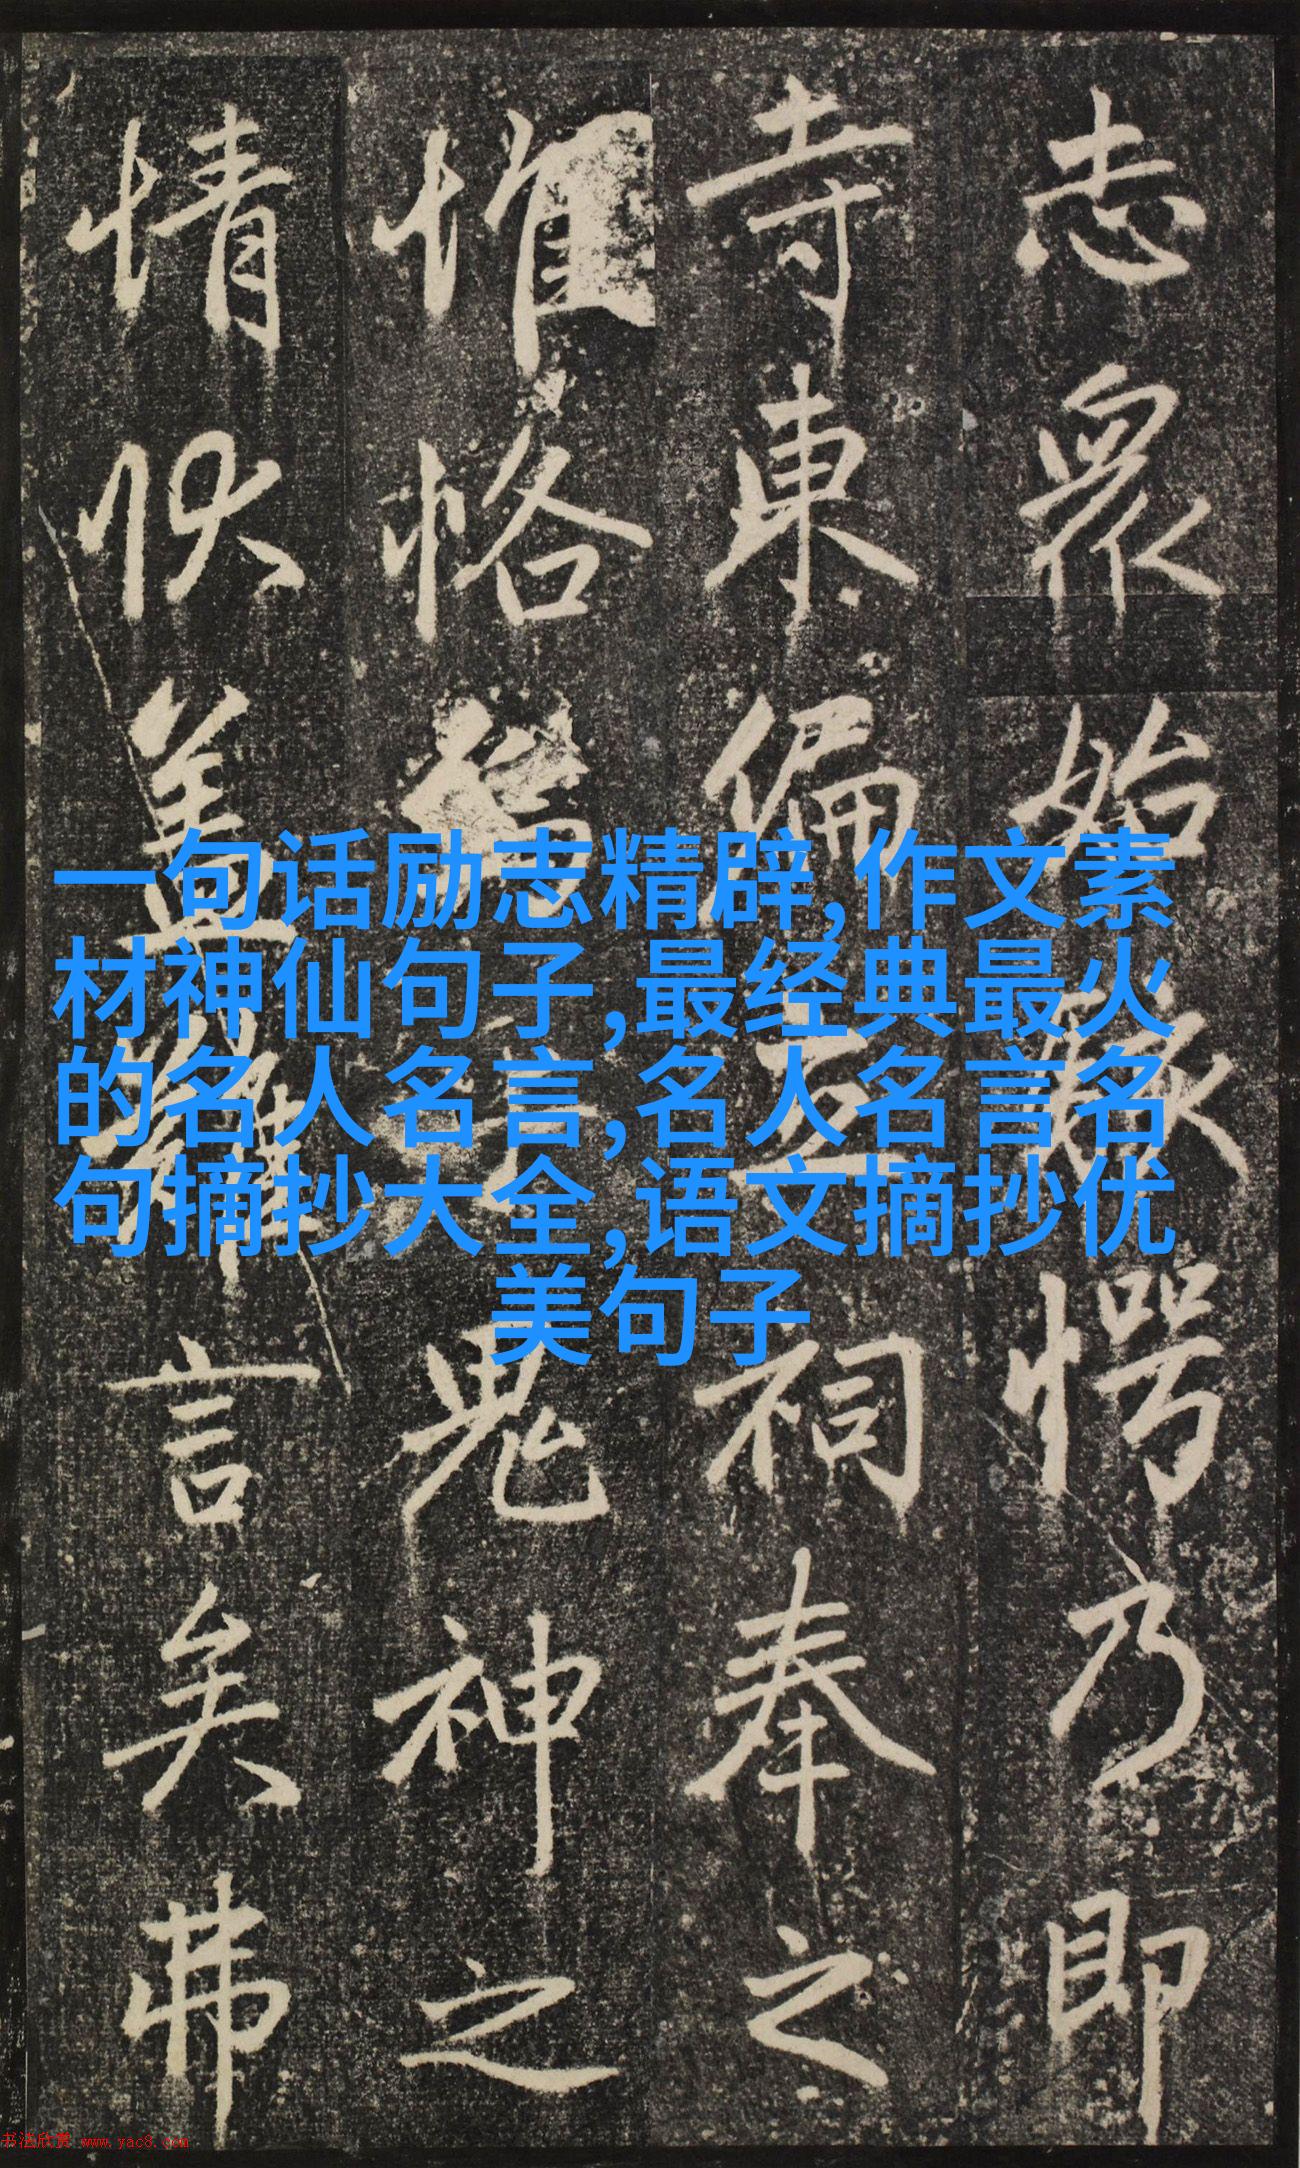 志眾始駭愕乃即
寺東偏立祠奉之
惟恪鬼神之
情狀蓋難言矣弗
一句话励志精辟,作文素
材神仙句子,最经典最火
的名人名言,名人名言名
句摘抄大全,语文摘抄优
美句子
书法欣赏 www.yac8.com